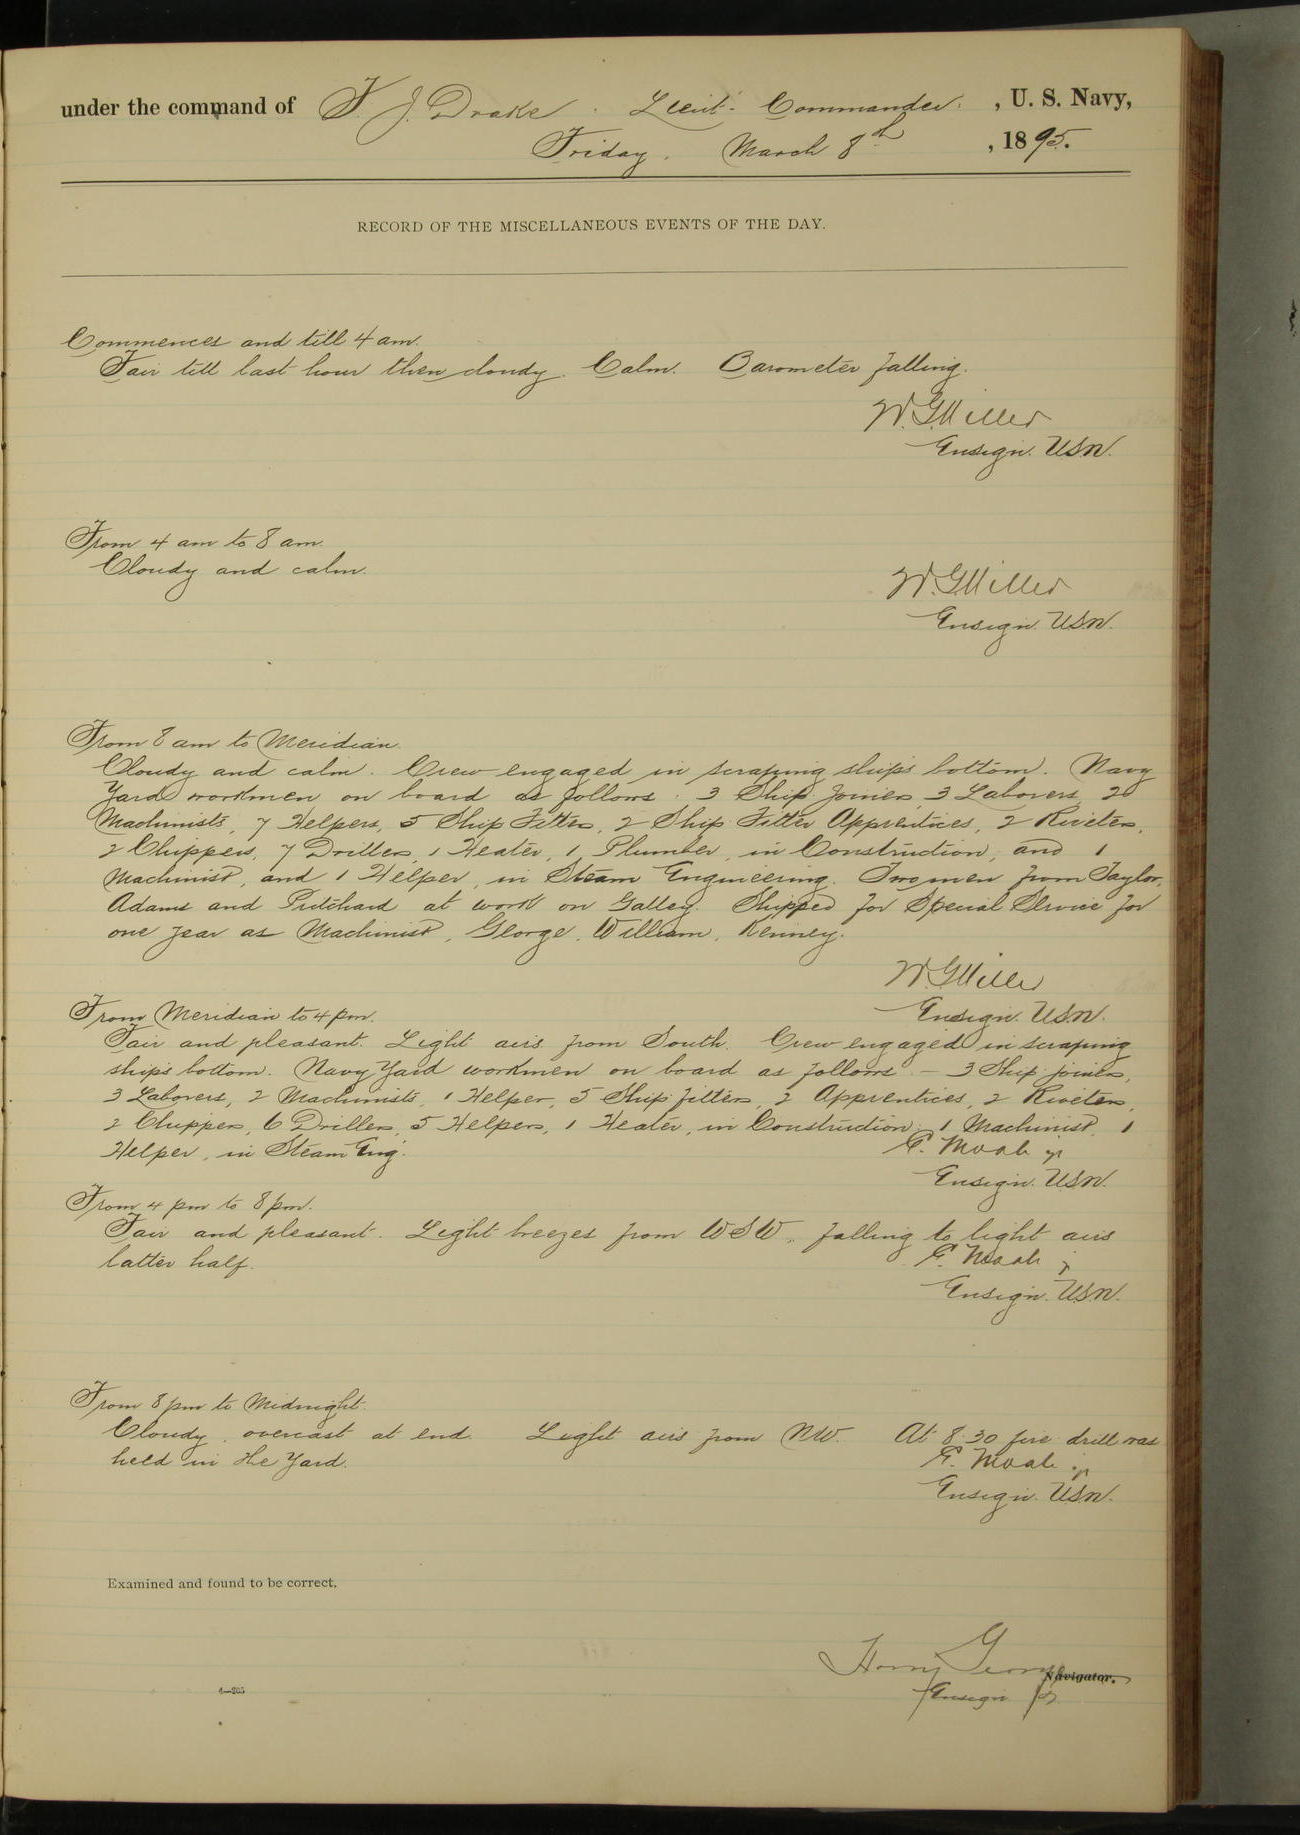 under the command of F. J. Drake. Lieut. Commander. , U. S. Navy,
Friday. March 8th , 1895.
RECORD OF THE MISCELLANEOUS EVENTS OF THE DAY.
Commences and till 4 am.
Fair till last hour then cloudy. Calm. Barometer falling.
W. G. Miller
Ensign. USN.
From 4 am to 8 am.
Cloudy and calm.
W. G. Miller
Ensign. USN.
From 8 am to Meridian.
Cloudy and calm. Crew engaged in scraping ships bottom. Navy
Yard workmen on board as follows: 3 Ship Joiners, 3 Laborers, 20
Machinists, 7 Helpers, 5 Ship Fitters, 2 Ship Fitter Apprentices, 2 Riveters,
2 Chippers, 7 Drillers, 1 Heater, 1 Plumber, in Construction, and 1
Machinist, and 1 Helper, in Steam Engineering. Two men from Taylor,
Adams and Pritchard at work on Galley. Shipped for Special Service for
one year as Machinist, George William Kenney.
W. G. Miller
Ensign. USN.
From Meridian to 4 pm.
Fair and pleasant. Light airs from South. Crew engaged in scraping
ships bottom. Navy Yard workmen on board as follows:- 3 Ship joiners,
3 Laborers, 2 Machinists, 1 Helper, 5 Ship fitters, 2 Apprentices, 2 Riveters,
2 Chippers, 6 Drillers, 5 Helpers, 1 Heater, in Construction; 1 Machinist, 1
Helper, in Steam Eng.
E. Moale jr
Ensign. USN.
From 4 pm to 8 pm.
Fair and pleasant. Light breezes from WSW, falling to light airs
latter half.
E. Moale jr
Ensign. USN.
From 8 pm to Midnight.
Cloudy, overcast at end. Light airs from NW. At 8.30 fire drill was
held in the Yard.
E. Moale jr
Ensign. USN.
Examined and found to be correct.
Harry George
Navigator.
Ensign
4—205